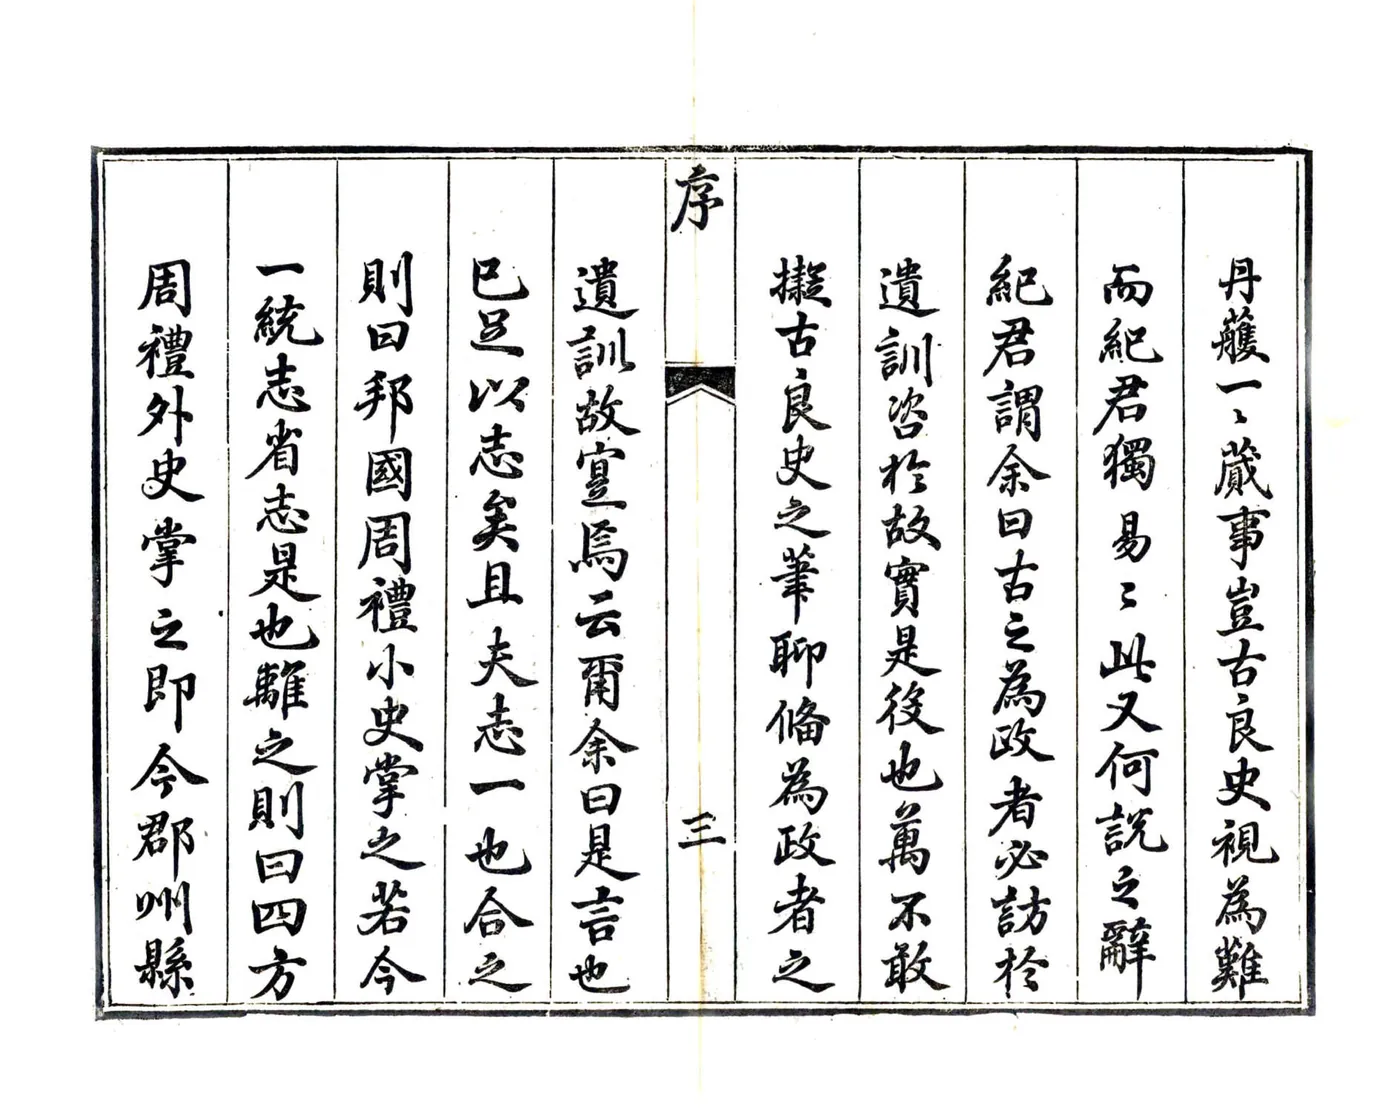 丹雘一〻蕆事豈古良史視為難
而紀君獨易〻此又何說之辭
紀君謂余曰古之為政者必訪於
遺訓咨於故實是後也萬不敢
擬古良史之筆聊備為政者之
序
三
遺訓故寔焉云爾余曰是言也
已足以志矣且夫志一也合之
則曰邦國周禮小史掌之若今
一統志省志是也離之則曰四方
周禮外史掌之即今郡州縣